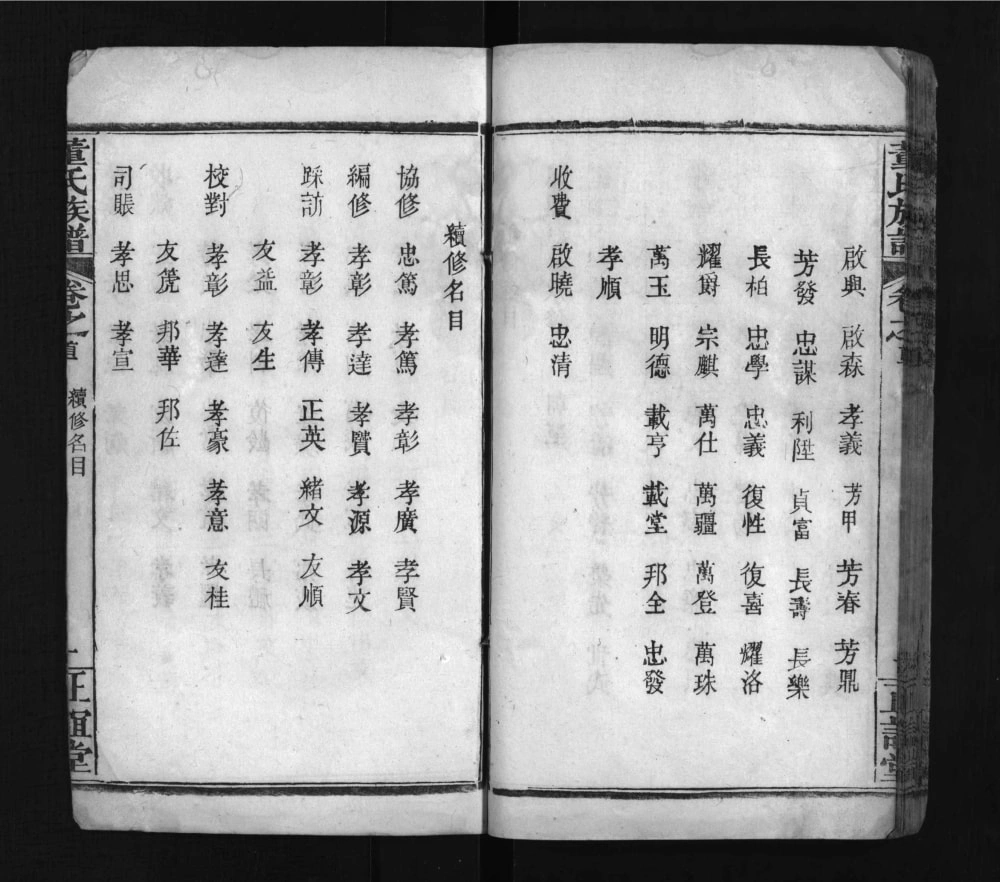 董氏族譜
卷之首
啟興 啟森 孝義 芳甲 芳春 芳鼎
芳發 忠謀 利陞 貞富 長壽 長樂
長柏 忠學 忠義 復性 復喜 耀洛
耀爵 宗麒 萬仕 萬疆 萬登 萬珠
萬玉 明德 載亨 載堂 邦全 忠發
孝順
收費 啟曉 忠清
續修名目
協修 忠篤 孝篤 孝彰 孝廣 孝賢
編修 孝彰 孝達 孝贒 孝源 孝文
踩訪 孝彰 孝傳 正英 緒文 友順
友益 友生
校對 孝彰 孝達 孝豪 孝意 友桂
友篪 邦華 邦佐
司賬 孝思 孝宣
董氏族譜
卷之首
續修名目
一
正誼堂